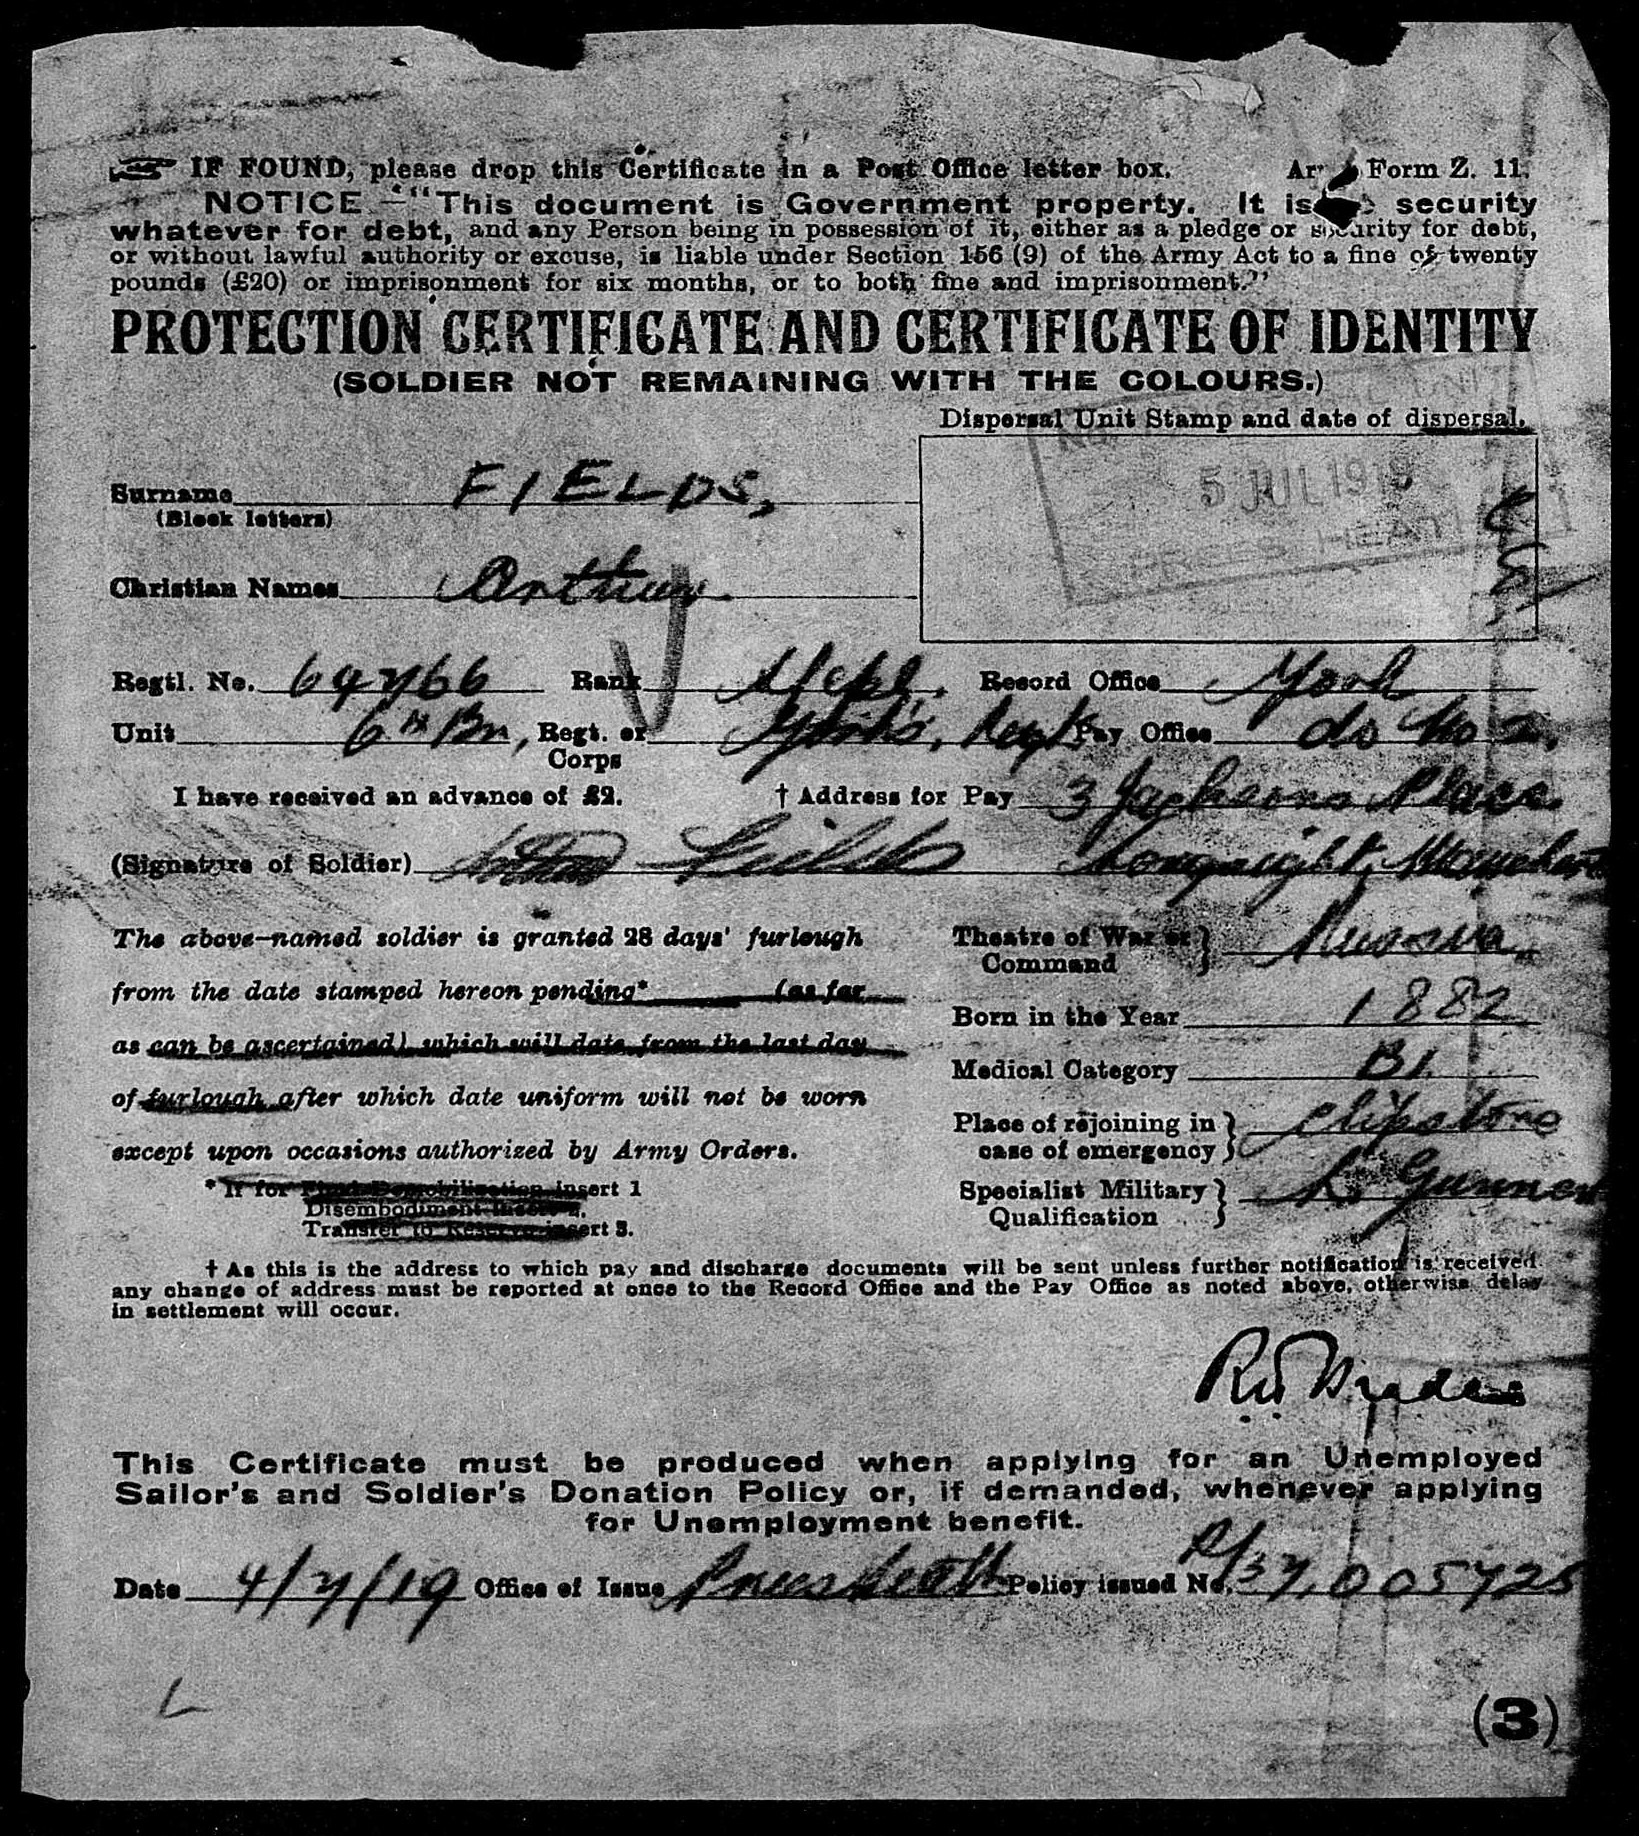 IF FOUND, please drop this Certificate in a Post Office letter box. Form Z. 11.
NOTICE.—"This document is Government property. It is security
whatever for debt, and any Person being in possession of it, either as a pledge or security for debt,
or without lawful authority or excuse, is liable under Section 156 (9) of the Army Act to a fine of twenty
pounds (£20) or imprisonment for six months, or to both fine and imprisonment."
PROTECTION CERTIFICATE AND CERTIFICATE OF IDENTITY
(SOLDIER NOT REMAINING WITH THE COLOURS.)
Dispersal Unit Stamp and date of dispersal.
5 JUL 1919
PREES HEATH
Surname FIELDS,
(Block letters)
Christian Names Arthur
Regtl. No. 64766 Rank Record Office York
Unit 6th Bn, Regt. or Yorks. Regt Pay Office do No 2.
Corps
I have received an advance of £2. † Address for Pay 3 Jacksons Place
(Signature of Soldier) Arthur Fields Longsight, Manchester
The above-named soldier is granted 28 days' furlough Theatre of War or Russia
Command
from the date stamped hereon pending* (as far
as can be ascertained) which will date from the last day
of furlough after which date uniform will not be worn
except upon occasions authorized by Army Orders.
Born in the Year 1882
Medical Category B1.
Place of rejoining in Clipstone
case of emergency
Specialist Military L. Gunner
Qualification
* If for Final Demobilization insert 1
Disembodiment insert 2.
Transfer to Reserve insert 3.
† As this is the address to which pay and discharge documents will be sent unless further notification is received
any change of address must be reported at once to the Record Office and the Pay Office as noted above, otherwise delay
in settlement will occur.
This Certificate must be produced when applying for an Unemployed
Sailor's and Soldier's Donation Policy or, if demanded, whenever applying
for Unemployment benefit.
Date 4/7/19 Office of Issue Prees Heath Policy issued No. A/37,005725
(3)